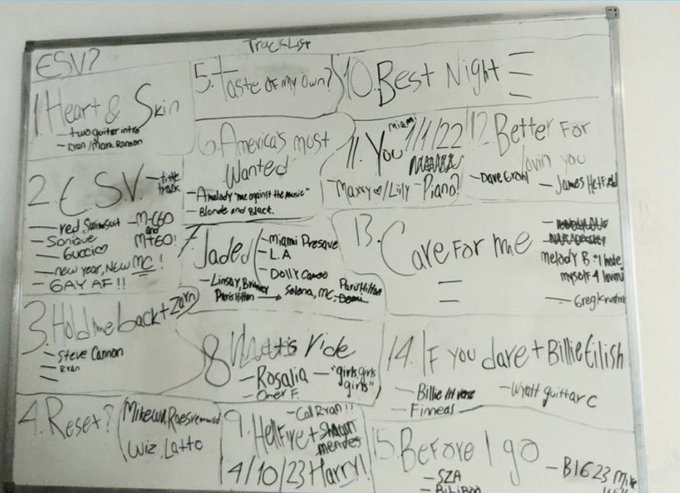 ESV?
Tracklist
1. Heart & Skin
- two guitar intro
- Ryan/Mark Ronson
2. ESV - title track
- red Swimsuit
- M-C60 and M+60!
- Sonique
- Gucci
- new year, New MC!
- GAY AF!!
3. Hold me back + Zayn
- Steve Cannon
- Ryan
4. Reset?
Mikewill, Raesremmurd
Wiz, Latto
5. Taste of my own?
6. America's most Wanted
- A melody "me against the music"
- Blonde and Black.
7. Jaded
- Miami Presque
- L.A
- Dolly Cameo
- Linsay, Britney
Paris Hilton
Selena, MC,
Paris Hilton
8. What is ride
- Rosalia - "girls, girls girls"
- Omer F.
9. Hellfire + Shawn mendes
- Call Ryan!!
4/10/23 Harry!
10. Best Night
11. You 1/1/22
miam
- Maxxy /Lilly - Piano?
12. Better For lovin you
- Dave Grohl
- James Hetfield
13. Care For me
melody B "I hate myself 4 lovin"
- Greg Kurstin
14. If you dare + Billie Eilish
- Billie
- Finneas
- Wyatt guitar C
15. Before I go
- SZA
- B16 23 Mike